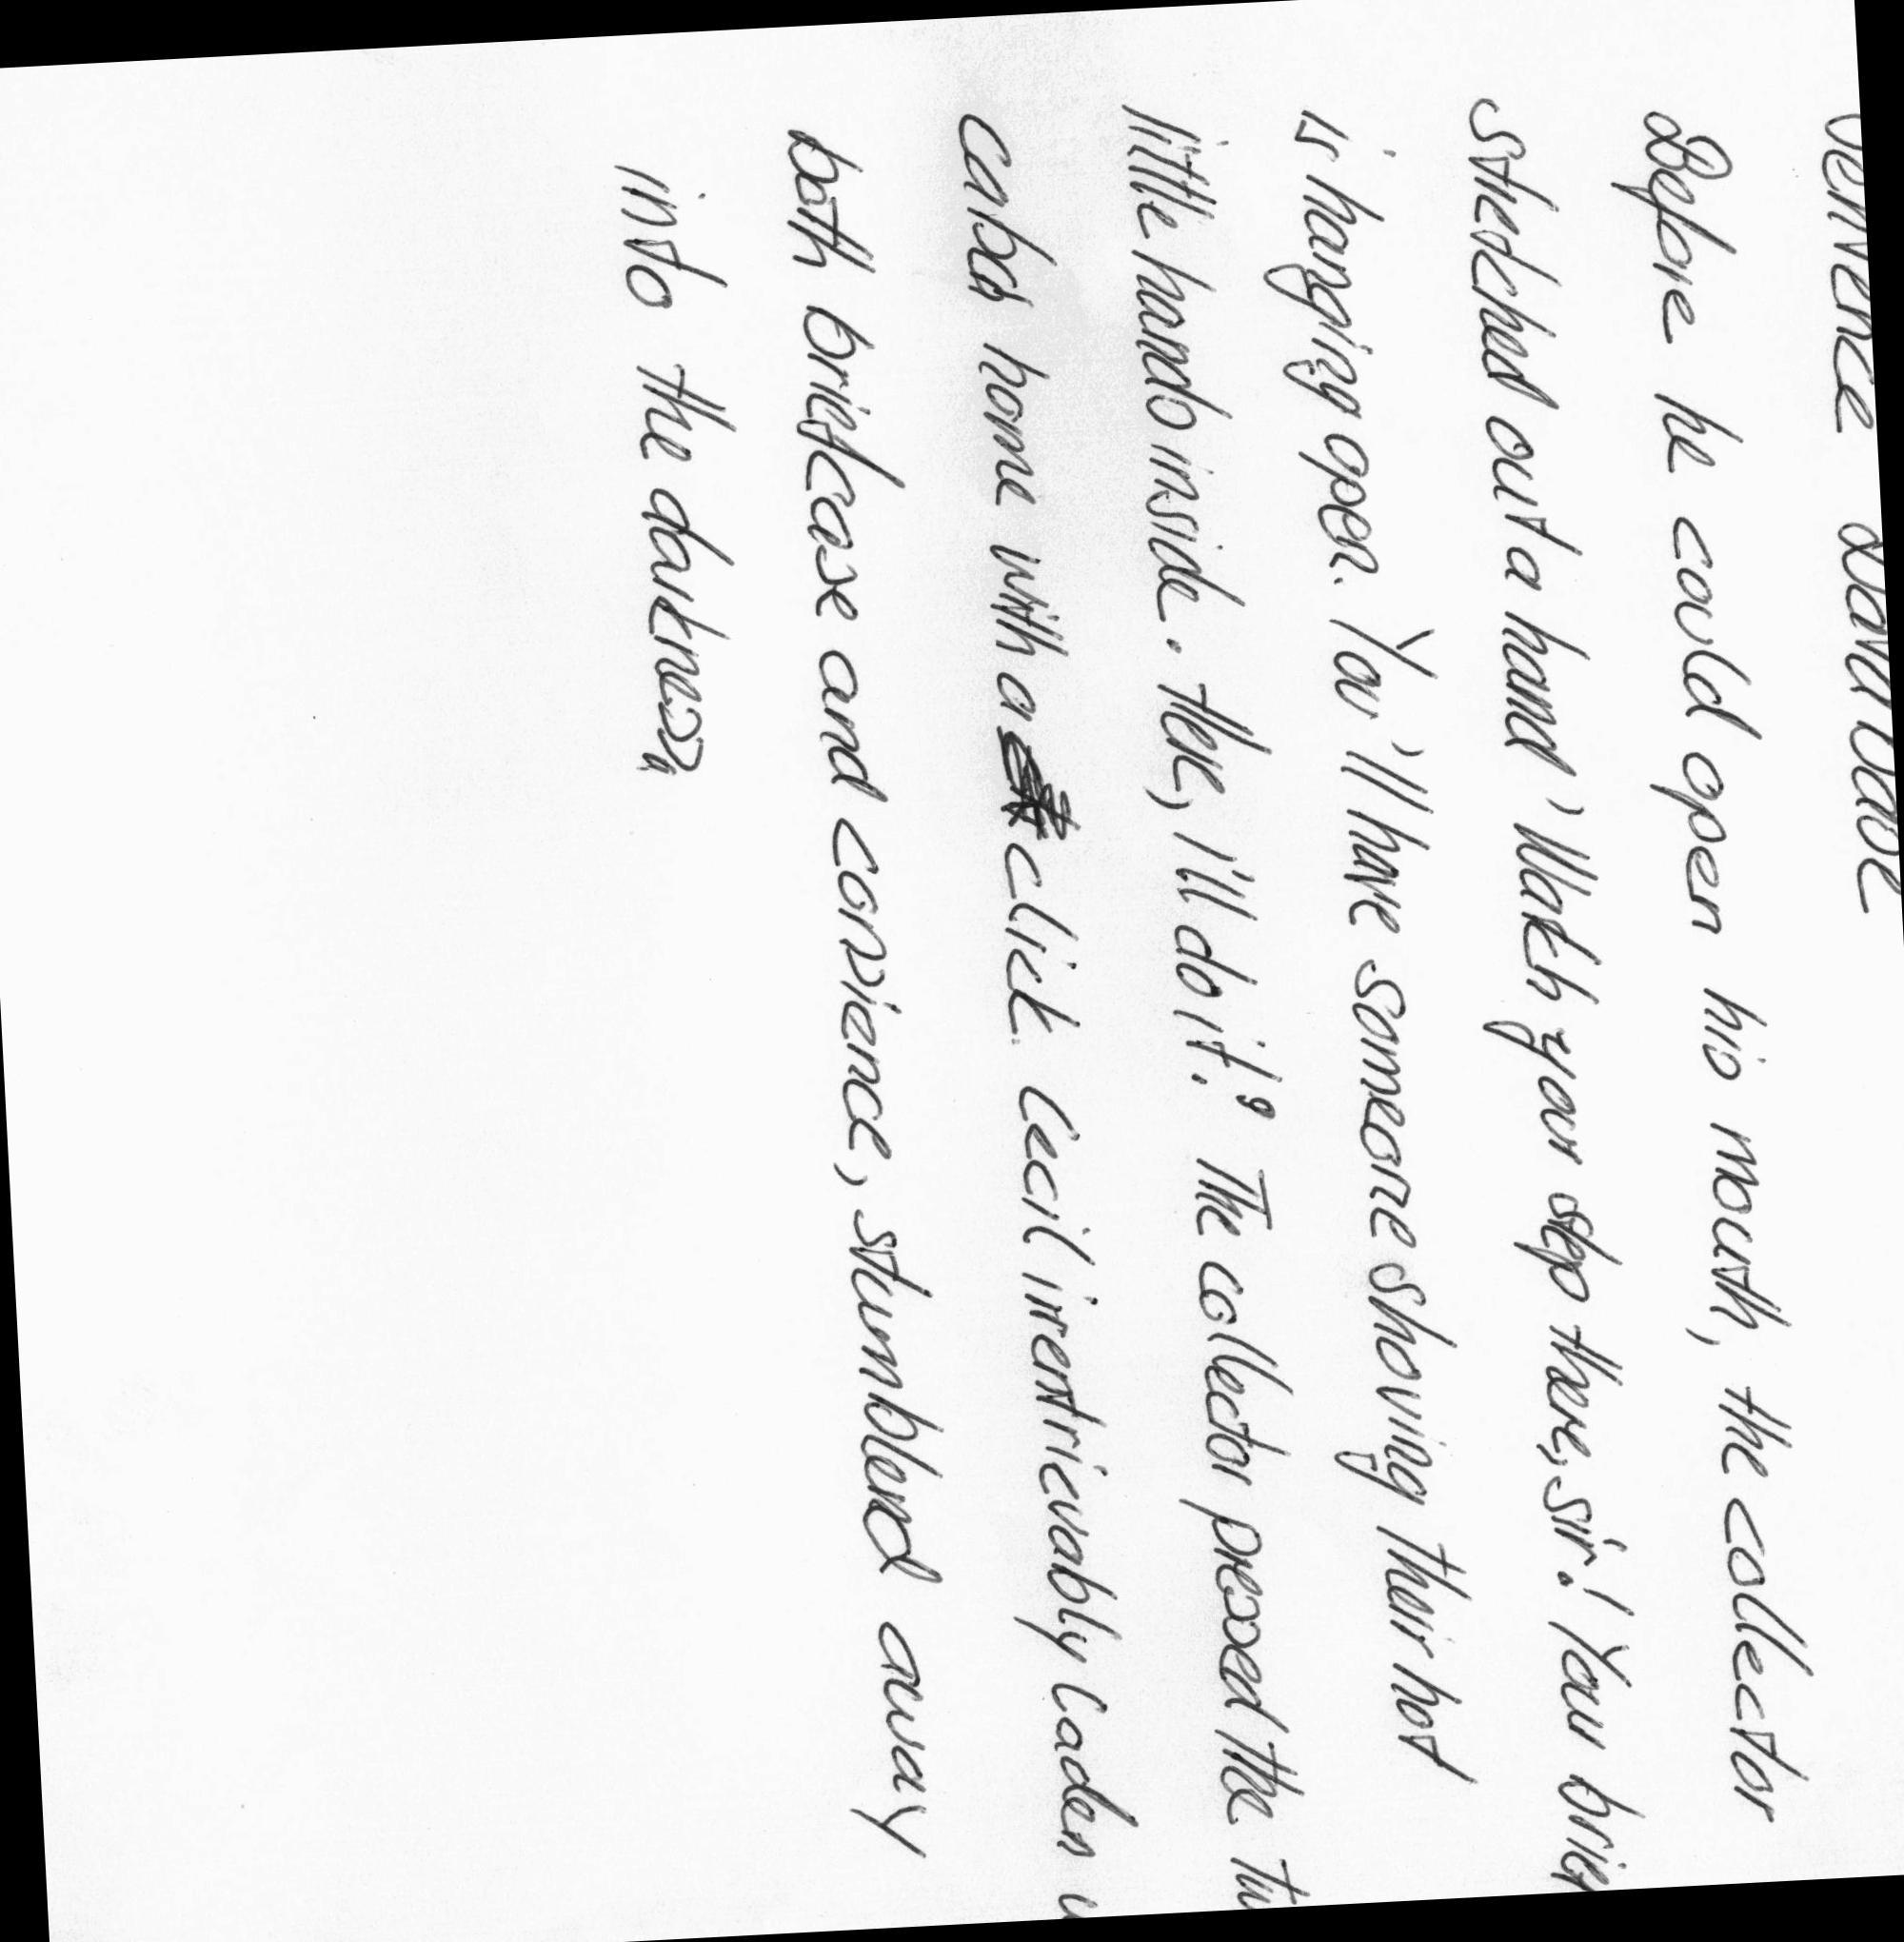 Before he could open his mouth, the collector
stretched out a hand 'Watch your step there, sir! Your
is hanging open. You'll have someone shoving their hot
little hands inside. Here, I'll do it!' The collector pressed the
home with a click. Cecil irretricvably laden
both briefcase and convience, stumbled away
into the darkness